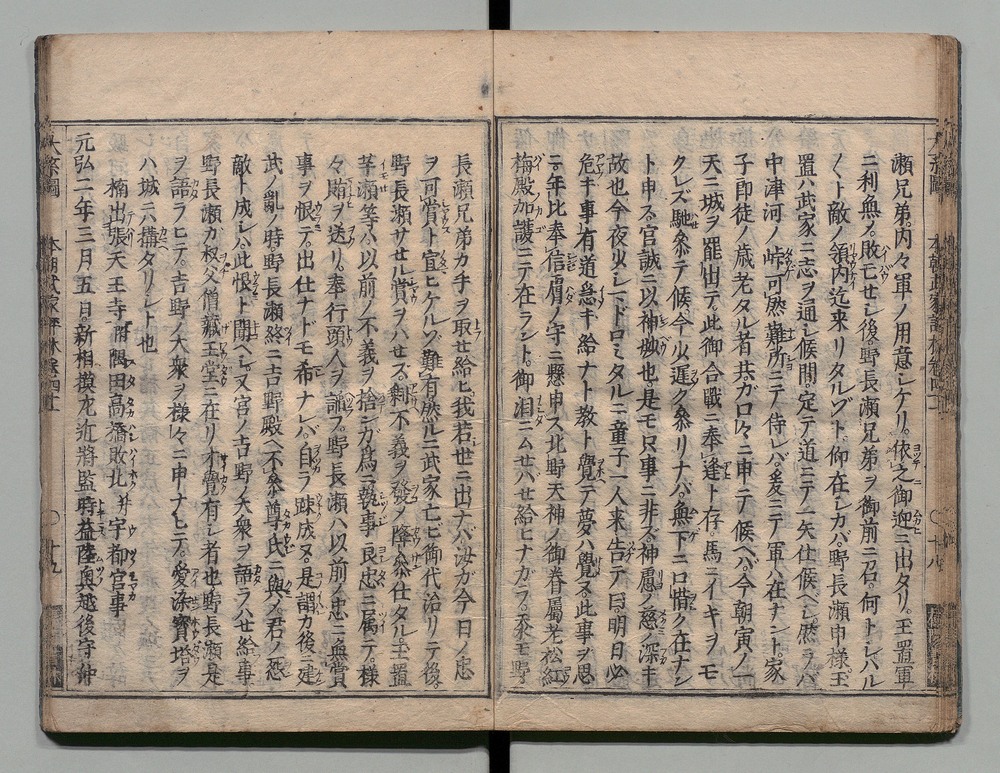 瀬兄弟内々軍ノ用意シケリ。依之御迎ニ出タリ。玉置軍
ニ利無ノ。敗モセシ後。野長瀬兄弟ヲ御前ニ召。何トシバル
〱ト敵ノ領内迄来リタルゾト。仰在シカバ。野長瀬申様。玉
置ハ武家ニ志ヲ通シ候間。定テ道ニテ一矢仕候ベシ。然ラバ
中津河ノ峠可然難所ニテ侍レバ。爰ニテ軍ハ在ナント。家
子郎徒ノ歳老タル者共。ガロ〱ニ申ニテ候ヘバ。今朝寅ノ一
天ニ城ヲ罷出テ。此御合戰ニ奉逢ト存。馬ニイキヲモ
クレズ馳参テ候。今少遅ク参リナバ。無下ニ口惜ク在ナン
ト申ス。官誠ニ以神妙也。是モ只事ニ非ズ。神慮ノ慈ノ深キ
故也。今夜少シトドロミタルニ。童子一人来告テ曰。明日必
危キ事有。道急キ給ナト教ト覺テ夢ハ覺ヌ。此事ヲ思
ニ。年比奉信眉ノ守ニ懸申ス北野天神ノ御眷屬。老松紅
梅殿加護ニテ在ラント。御泪ニムセバセ給ヒナカラ。忝モ野
長瀬兄弟カ手ヲ取セ給ヒ。我若世ニ出ナバ。汝カ今日ノ忠
ヲ可賞ト宣ヒケルゾ。難有。然ルニ武家亡ビ。御代治リテ後。
野長瀬サセル賞ヲハセズ。剰不義ヲ發ノ降参仕タル。玉置
芋瀬等ハ以前ノ不義ヲ捨ンガ爲ニ。執事良忠ニ属テ。様
々賄ヲ送リ。奉行頭人ヲ諂フ。野長瀬ハ以前ノ忠ニ無賞
事ヲ恨テ。出仕ナドモ希ナレバ。自ラ疎成ヌ。是謂カ後ニ建
武ノ亂ノ時。野長瀬終ニ吉野殿ヘ不参。尊氏ニ與ノ君ノ怨
敵ト成シハ。此恨ト聞ヘシ。又宮ノ吉野ノ大衆ヲ語ラハセ給事
野長瀬カ叔父僧。藏王堂ニ在リ。才覺有シ者也。野長瀬是
ヲ語ラヒテ。吉野ノ大衆ヲ様々ニ申ナヒテ。愛染寶塔ヲ
ハ城ニ六構タリシト也
楠出張天王寺付隅田高橋敗北并宇都宮事
元弘二年三月五日。新相摸左近將監時益。陸奥越後守仲